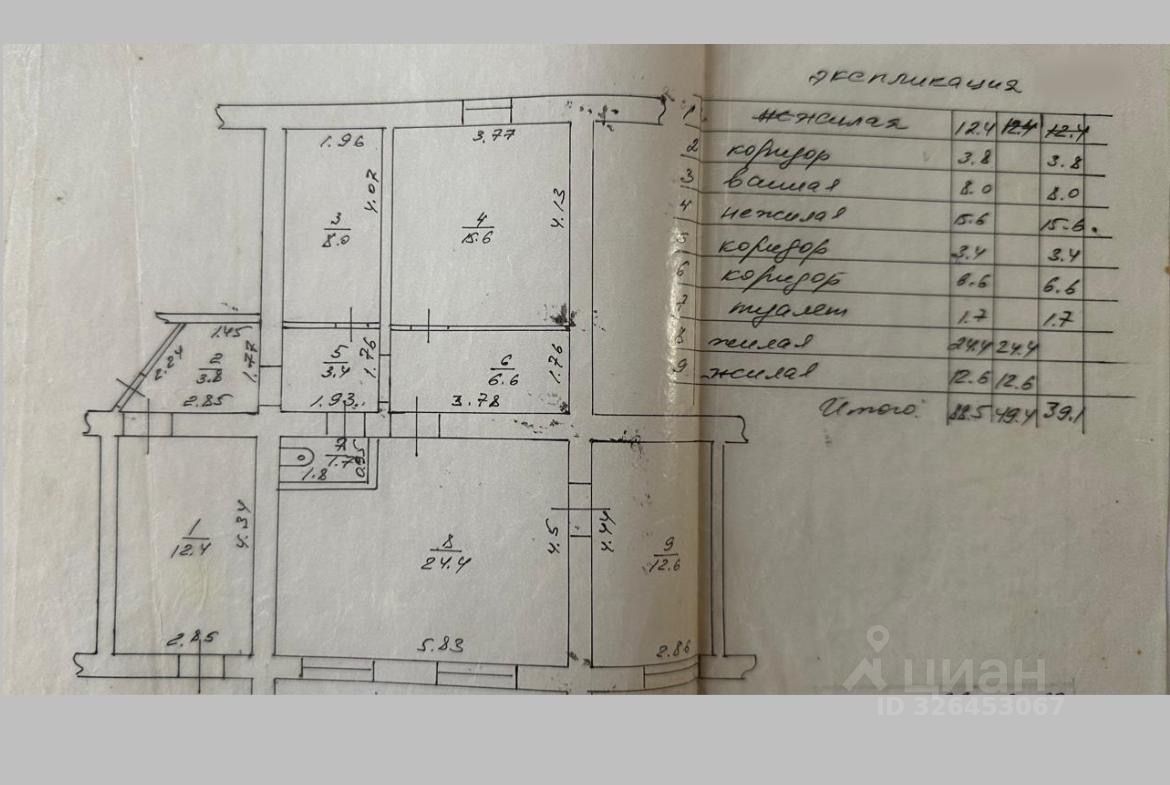 экспликация
1 нежилая 12.4 12.4 12.4
2 коридор 3.8 3.8
3 ванная 8.0 8.0
4 нежилая 15.6 15.6
5 коридор 3.4 3.4
6 коридор 6.6 6.6
7 туалет 1.7 1.7
8 жилая 24.4 24.4
9 жилая 12.6 12.6
Итого: 88.5 49.4 39.1
1.96
3.77
4.07
4.13
3
8.0
4
15.6
1.45
2.24
2
3.8
1.77
2.85
5
3.4
1.76
1.93
6
6.6
1.76
3.78
7
1.7
0.95
1.8
1
12.4
4.34
2.85
8
24.4
4.5
5.83
4.44
9
12.6
2.86
циан
ID 326453067